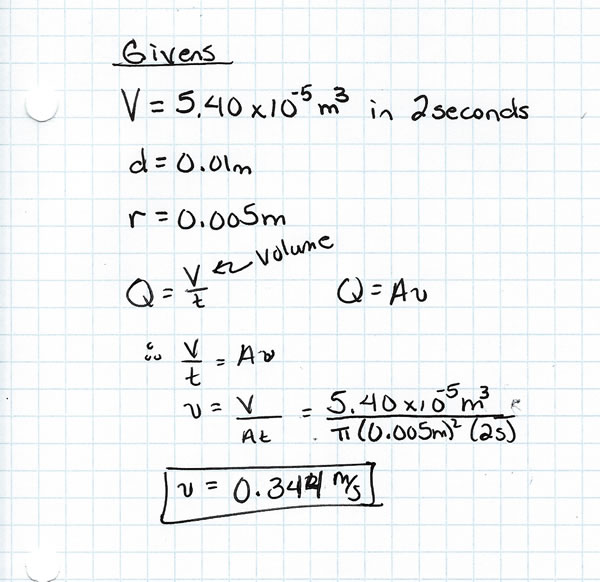 Givens
V = 5.40 x10⁻⁵ m³ in 2seconds
d = 0.01m
r = 0.005m
Q = V/t ← Volume Q = Av
∴ V/t = Av
v = V/At = 5.40 x10⁻⁵ m³ / π(0.005m)² (2s)
v = 0.344 m/s